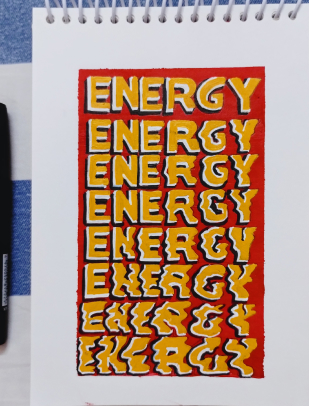 ENERGY
ENERGY
ENERGY
ENERGY
ENERGY
ENERGY
ENERGY
ENERGY